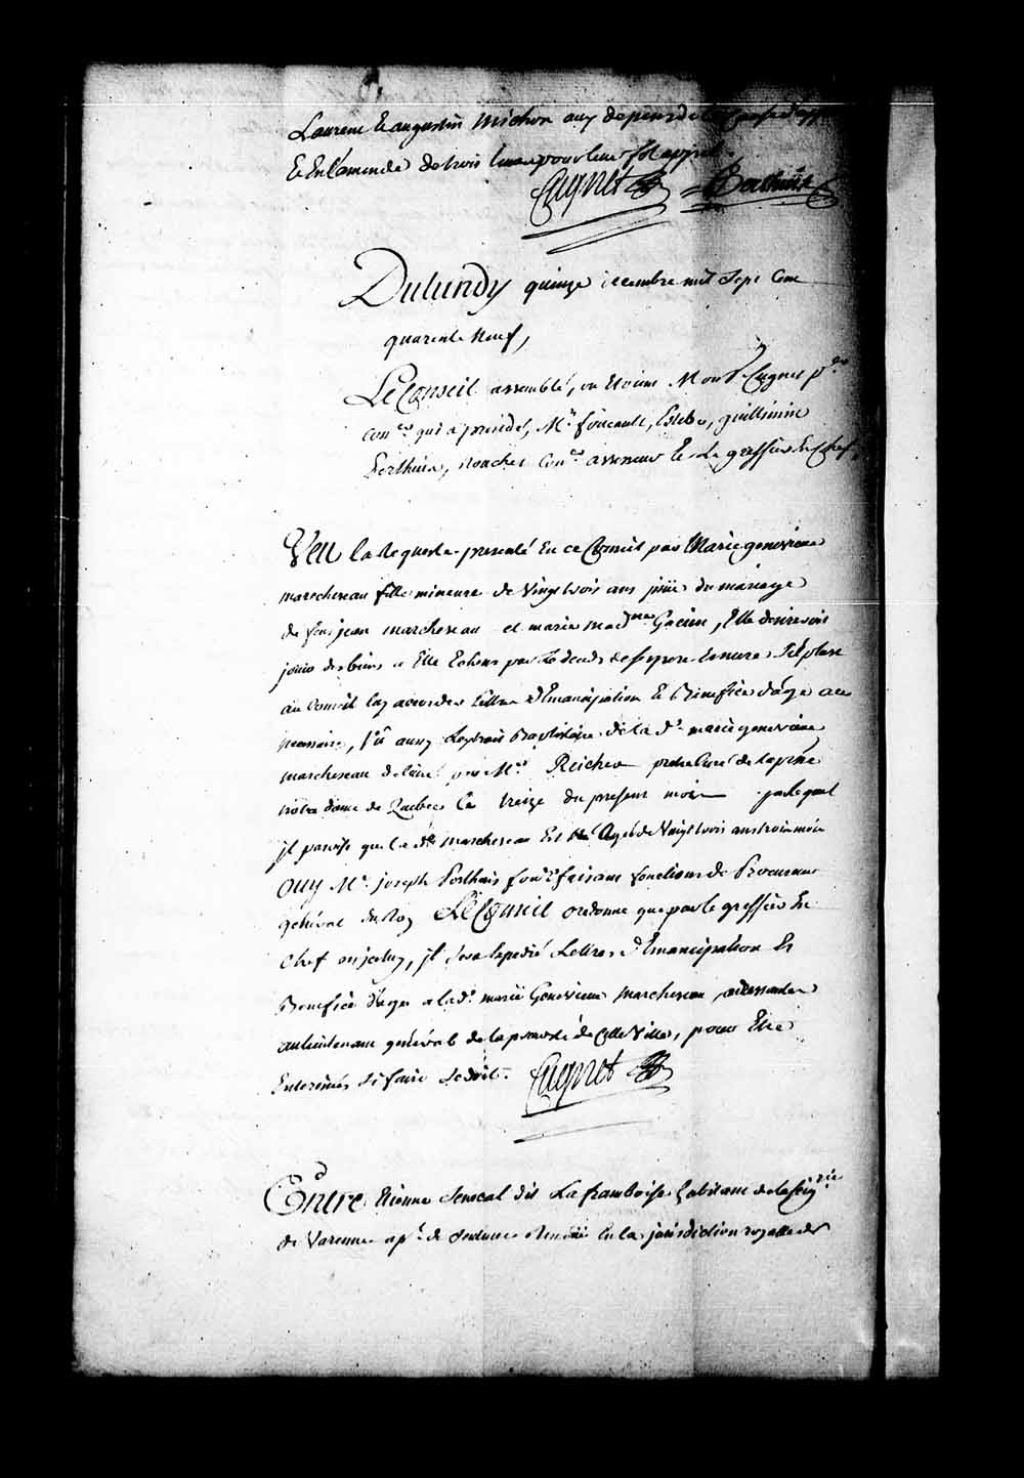 Laurent Et augustin Michon aux depens de la Cause d'app
Et En L'amende de trois livres pour leur fol appel.
Cugnet Berthier
Du Lundy quinze decembre mil Sept Cent
quarante Neuf,
Le Conseil assemblé, ou Etoient Mons.r Cugnet p.er
Con.er qui a presidé, M.rs foucault, Estebe, guillimin
Perthuis, nouchet Con.ers assesseurs Et Le greffier En Chef
Veu la Requeste presenté En ce Conseil par Marie genevieve
marchereau fille mineure de Vingt trois ans issüe du mariage
de feu jean marchereau et marie mad.ne Gacien, Elle desireroit
jouir des biens a Elle Echeus par Le decés de ses pere Et mere S'il plaise
au Conseil luy accorder Lettres d'Emancipation Et Benefice d'âge au
necessaire, Vû aussy Lextrait Baptistaire de la d.e marie genevieve
marchereau delivré par M.re Reiche pretre Curé de la p.sse
notre dame de Quebec Le treize du present mois par lequel
il paroist que la d.e marchereau Est Agée de Vingt trois ans trois mois
OUY M.e joseph Perthuis Con.er faisant fonctions de Procureur
general du Roy LE Conseil ordonne que par le greffier En
Chef en jceluy, jl sera Expedié Lettres d'Emancipation Et
Benefice d'age a la d.e marie Genevieve marchereau adressantes
au Lieutenant général de la prevosté de Cette Ville, pour Etre
Enterinées Si faire Se doit. Cugnet
Entre Etienne Senecal dit La framboise habitant de la Seig.rie
de Varenne ap.t de Sentence Rendüe En la jurisdiction royalle de